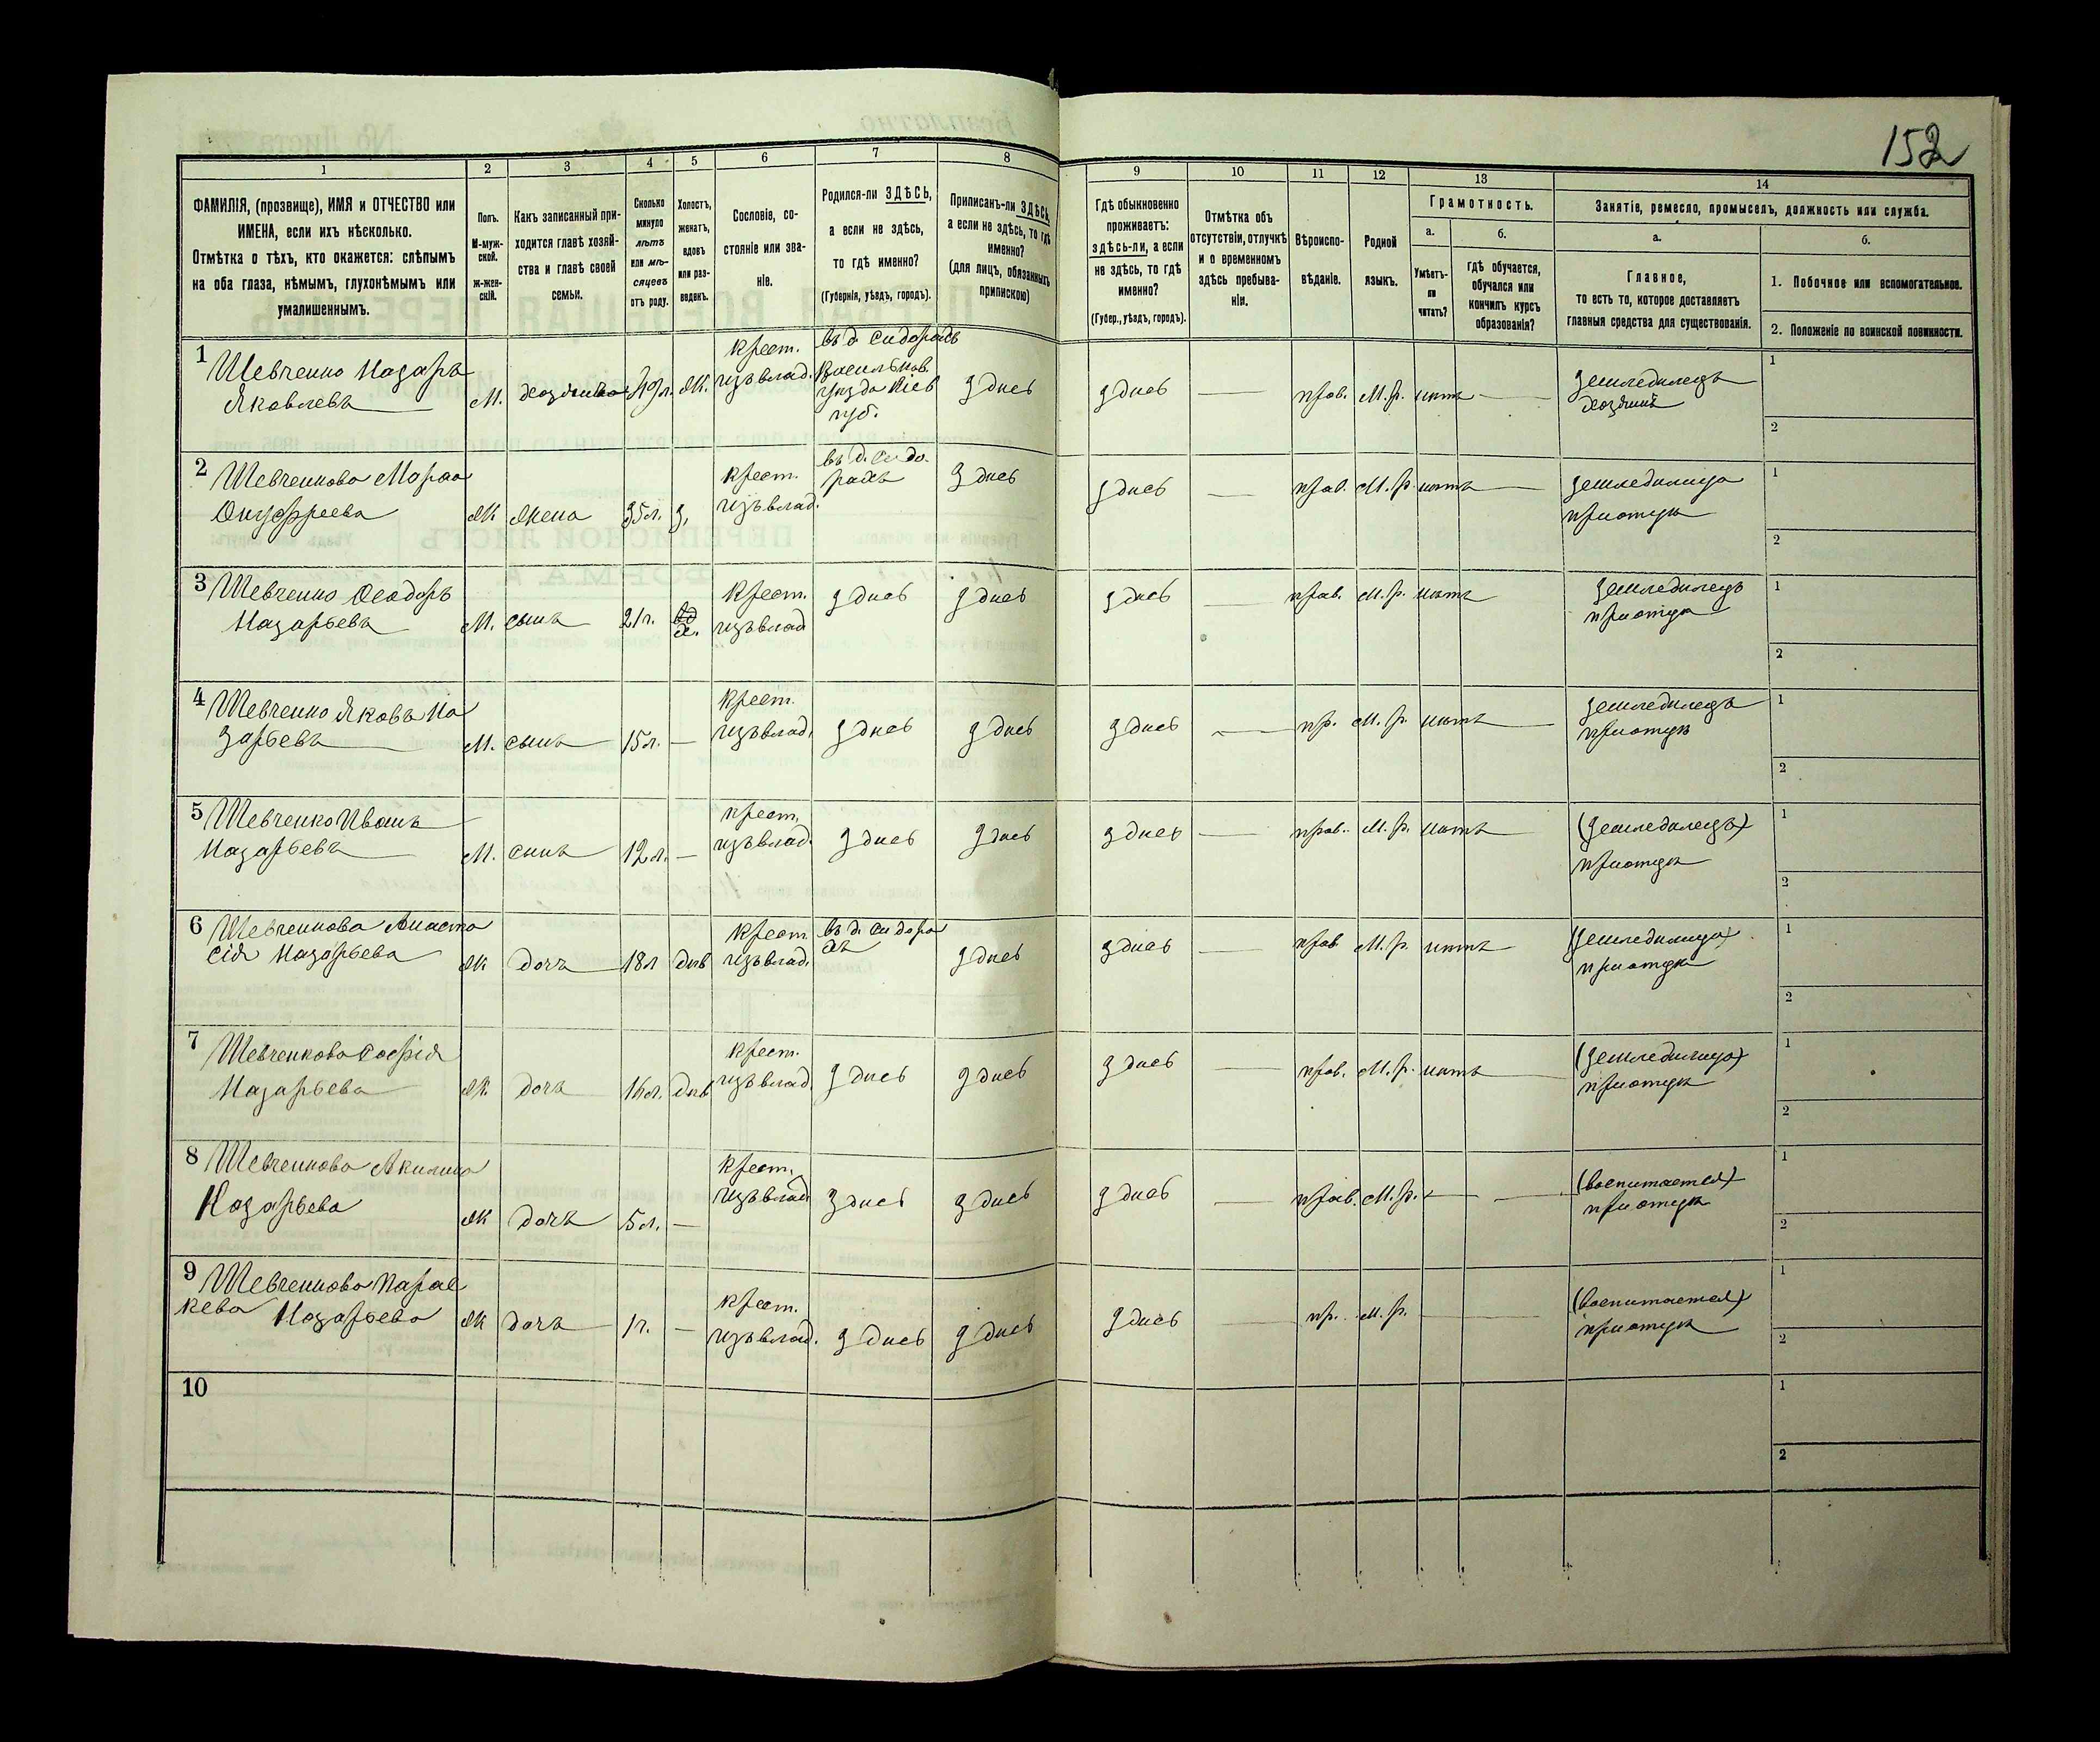 152
1 2 3 4 5 6 7 8 9 10 11 12 13 14
ФАМИЛІЯ, (прозвище), ИМЯ и ОТЧЕСТВО или
ИМЕНА, если ихъ нѣсколько.
Отмѣтка о тѣхъ, кто окажется: слѣпымъ
на оба глаза, нѣмымъ, глухонѣмымъ или
умалишеннымъ.
Полъ.
М-муж-
ской.
ж-жен-
скій.
Какъ записанный при-
ходится главѣ хозяй-
ства и главѣ своей
семьи.
Сколько
минуло
лѣтъ
или мѣ-
сяцевъ
отъ роду.
Холостъ,
женатъ,
вдовъ
или раз-
веденъ.
Сословіе, со-
стояніе или зва-
ніе.
Родился-ли ЗДѢСЬ,
а если не здѣсь,
то гдѣ именно?
(Губернія, уѣздъ, городъ).
Приписанъ-ли ЗДѢСЬ,
а если не здѣсь, то гдѣ
именно?
(для лицъ, обязанныхъ
припискою)
Гдѣ обыкновенно
проживаетъ:
здѣсь-ли, а если
не здѣсь, то гдѣ
именно?
(Губер., уѣздъ, городъ).
Отмѣтка объ
отсутствіи, отлучкѣ
и о временномъ
здѣсь пребыва-
ніи.
Вѣроиспо-
вѣданіе.
Родной
языкъ.
Грамотность.
а.
Умѣетъ-
ли
читать?
б.
Гдѣ обучается,
обучался или
кончилъ курсъ
образованія?
Занятіе, ремесло, промыселъ, должность или служба.
а.
Главное,
то есть то, которое доставляетъ
главныя средства для существованія.
б.
1. Побочное или вспомогательное.
2. Положеніе по воинской повинности.
1 Шевченко Назаръ
Яковлевъ
М.
хозяинъ
49 л.
ж.
крест.
изъ влад.
въ д. Сидорахъ
Васильков.
уѣзда Кіев
губ.
здѣсь
здѣсь
прав.
М. р.
нѣтъ
земледѣлецъ
хозяинъ
1
2
2 Шевченкова Марія
Онуфріева
ж
жена
35 л.
з,
крест.
изъ влад.
въ д. Сидо-
рахъ
здѣсь
здѣсь
прав.
М. р.
нѣтъ
земледѣлица
при отцѣ
1
2
3 Шевченко Ѳеодоръ
Назарьевъ
М.
сынъ
21 г.
х.
крест.
изъ влад
здѣсь
здѣсь
здѣсь
прав.
М. р.
нѣтъ
земледѣлецъ
при отцѣ
1
2
4 Шевченко Яковъ На
зарьевъ
М.
сынъ
15 л.
крест.
изъ влад.
здѣсь
здѣсь
здѣсь
пр.
М. р.
нѣтъ
земледѣлецъ
при отцѣ
1
2
5 Шевченко Иванъ
Назарьевъ
М.
сынъ
12 л.
крест.
изъ влад.
здѣсь
здѣсь
здѣсь
прав.
М. р.
нѣтъ
(земледѣлецъ)
при отцѣ
1
2
6 Шевченкова Анаста
сія Назарьева
ж
дочь
18 л
дѣв
крест
изъ влад.
въ д. Сидора
хъ
здѣсь
здѣсь
прав
М. р.
нѣтъ
(земледѣлица)
при отцѣ
1
2
7 Шевченкова Софія
Назарьева
ж.
дочь
16 л.
дѣв
крест.
изъ влад.
здѣсь
здѣсь
здѣсь
прав.
М. р.
нѣтъ
(земледѣлица)
при отцѣ
1
2
8 Шевченкова Акилина
Назарьева
ж
дочь
5 л.
крест.
изъ влад
здѣсь
здѣсь
здѣсь
прав.
М. р.
(воспитается)
при отцѣ
1
2
9 Шевченкова Парас
кева Назарьева
ж
дочь
1 г.
крест.
изъ влад.
здѣсь
здѣсь
здѣсь
пр.
М. р.
(воспитается)
при отцѣ
1
2
10
1
2